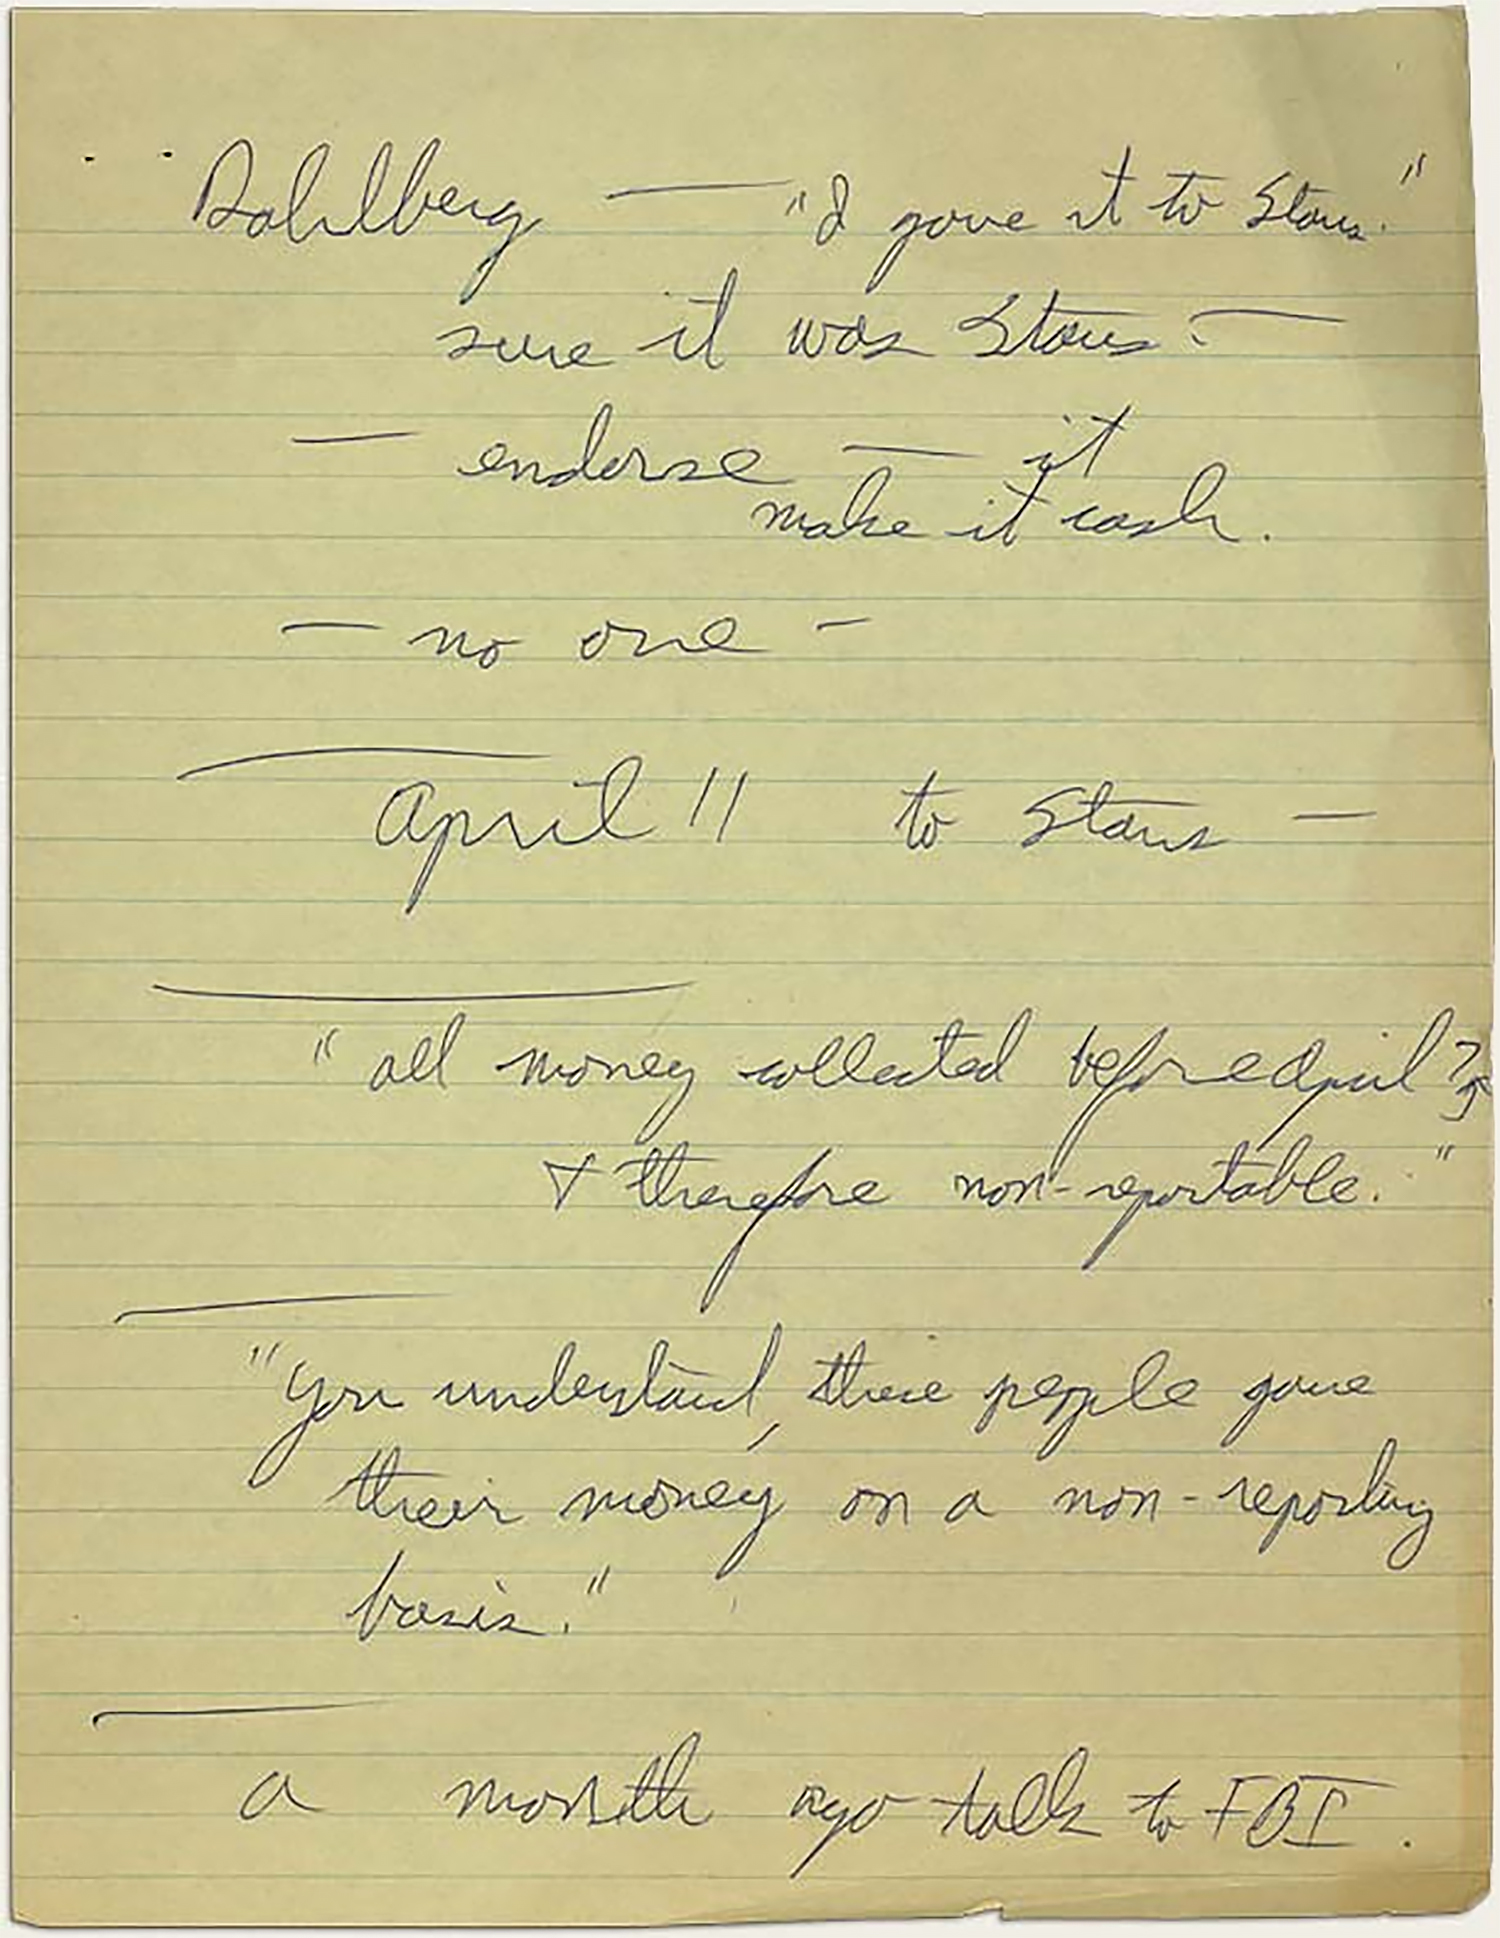 Dahlberg — "I gave it to Stans."
sure it was Stans. —
— endorse — it
make it cash.
— no one —
April 11 to Stans —
"all money collected before April 7
& therefore non-reportable."
"you understand, these people gave
their money on a non-reporting
basis."
a month ago talk to FBI.